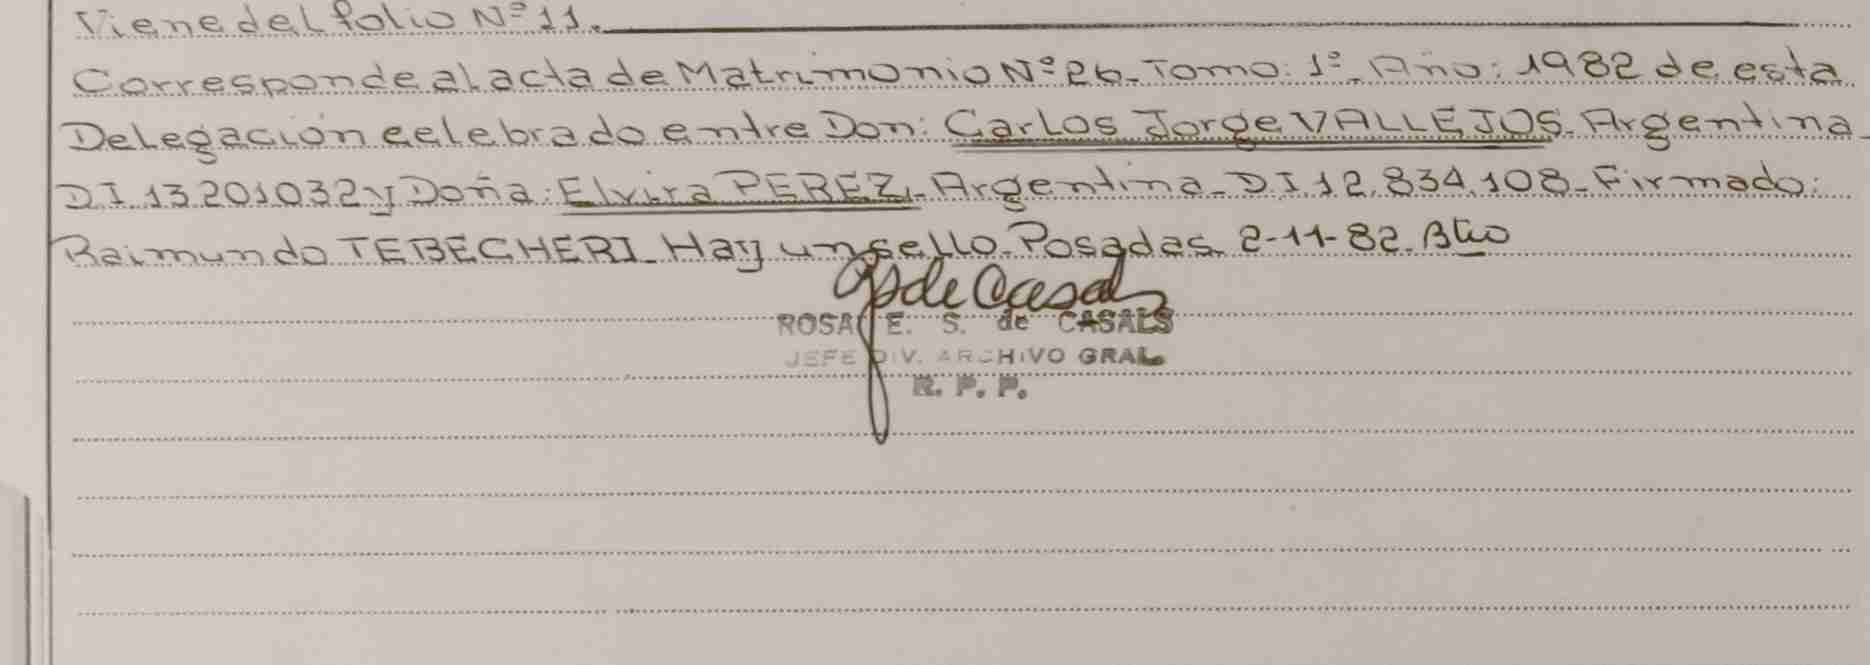 Viene del folio Nº 11.
Corresponde al acta de Matrimonio Nº 26. Tomo: 1º. Año: 1982 de esta
Delegación celebrado entre Don: Carlos Jorge VALLEJOS. Argentina_
DI 13.201032 y Doña: Elvira PEREZ. Argentina_ D.I. 12.834.108_ Firmado:
Raimundo TEBECHERI_ Hay un sello. Posadas. 2-11-82.
ROSA E. S. de CASALS
JEFE DIV. ARCHIVO GRAL.
R. P. P.